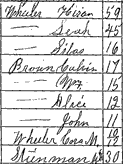 Wheeler Hiram 59
— Leah 45
— Silas 16
Brown Calvin 17
— May 15
— Alice 12
— John 11
Wheeler Cora M. 19
30